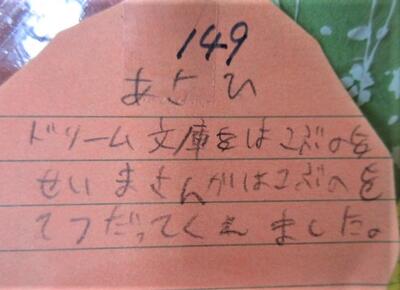 149
あさひ
ドリーム文庫をはこぶのを
せいまさんがはこぶのを
てつだってくれました。